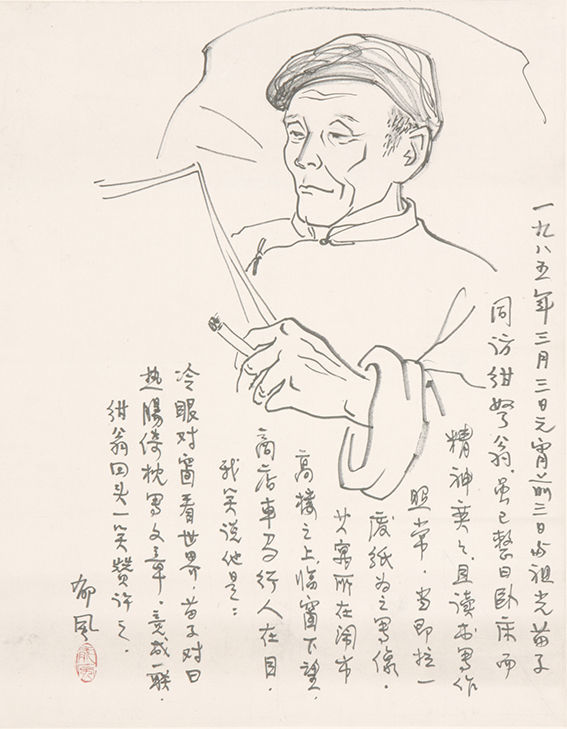 一九八五年三月三日元宵前三日与祖光苗子
同访绀弩翁，虽已整日卧床而
精神奕々且读书写作
照常。当即拉一
废纸为之写像。
其寓所在闹市
高楼之上临窗下望，
商店車马行人在目。
我笑说他是：
冷眼对窗看世界，苗子对曰
热腸倚枕写文章。竟成一联，
绀翁回头一笑赞许之。
郁风